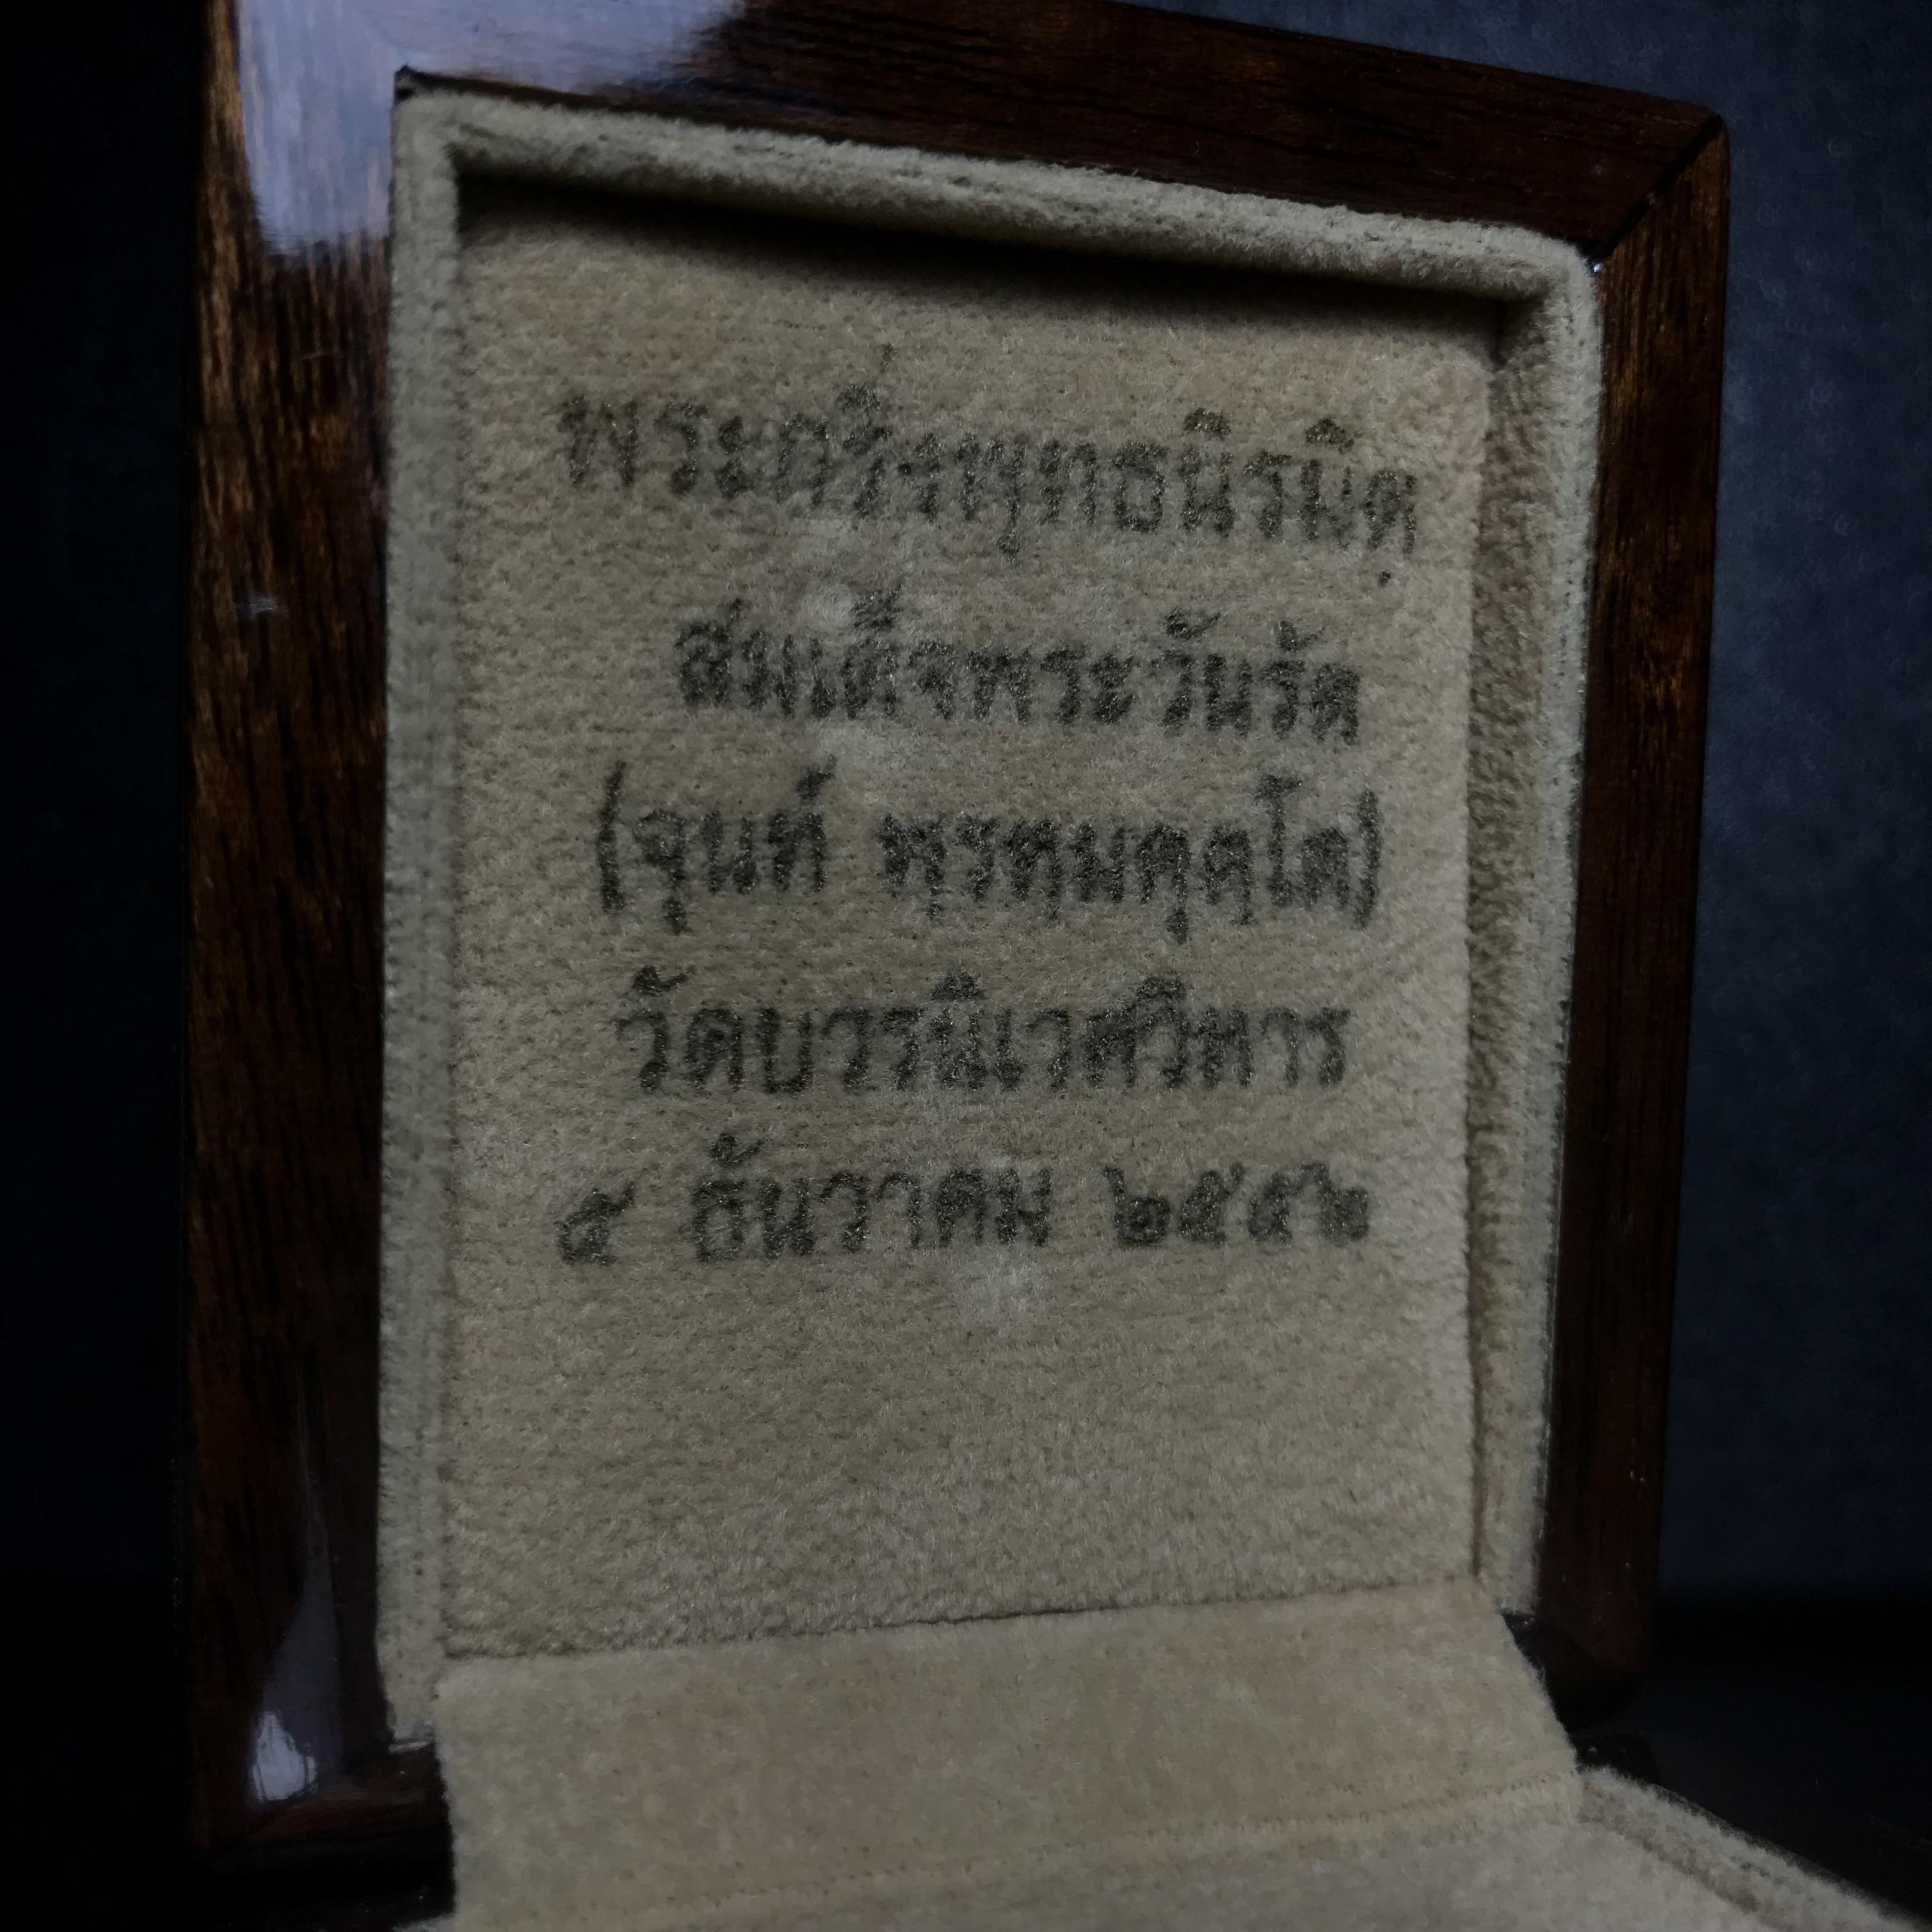 พระกริ่งพุทธนิรมิต
สมเด็จพระวันรัต
(จุนท์ พฺรหฺมคุตฺโต)
วัดบวรนิเวศวิหาร
๕ ธันวาคม ๒๕๕๒